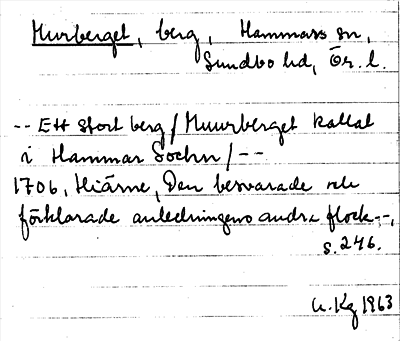 Murberget, berg, Hammars sn,
Sundbo hd, Ör. l.
-- Ett stort berg / Muurberget kallat
i Hammar Sochn / --
1706, Hiärne, Den besvarade och
förklarade anledningens andra flock --,
s. 246.
U. Kg 1963